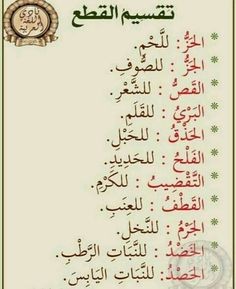 نادي اللغة العربية
تقسيم القطع
* الحَزُّ : للَّحْمِ.
* الجَزُّ : للصُّوفِ.
* القَصُّ : للشَّعْرِ.
* البَرْيُ : للقَلَمِ.
* الحَذْقُ : للحَبْلِ.
* الفَلْحُ : للحَدِيدِ.
* التَّقْضِيبُ : للكَرْمِ.
* القَطْفُ : للعِنَبِ.
* الجَرْمُ : للنَّخلِ.
* الخَضْدُ : للنَّبَاتِ الرَّطْبِ.
* الحَصْدُ : للنَّبَاتِ اليَابِسِ.